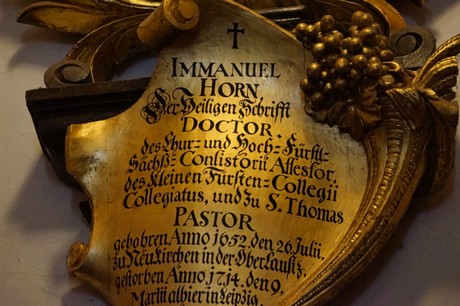 †
IMMANUEL
HORN,
Der Heiligen Schrifft
DOCTOR
des Chur- und Hoch-Fürstl-
Sächß- Consistorii Assessor,
des Kleinen Fürsten-Collegii
Collegiatus, und zu S. Thomas
PASTOR
gebohren Anno 1652, den 26 Julii,
zu Neukirchen in der Ober Lausitz,
gestorben Anno, 1714, den 9,
Martii alhier in Leipzig,